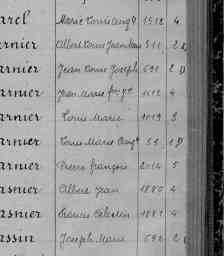 arel Marie Louis Augte 1512 4
arnier Albert Louis 511 2
arnier Jean Louis Joseph 691 2 D
arnier Jean Marie 1612 4
arnier Louis Marie 1019 3
arnier Louis Marie Augte 55 1 D
arnier Pierre François 2014 5
asnier Albert Jean 1880 4
asnier Célestin 1881 4
assin Joseph Marie 592 2